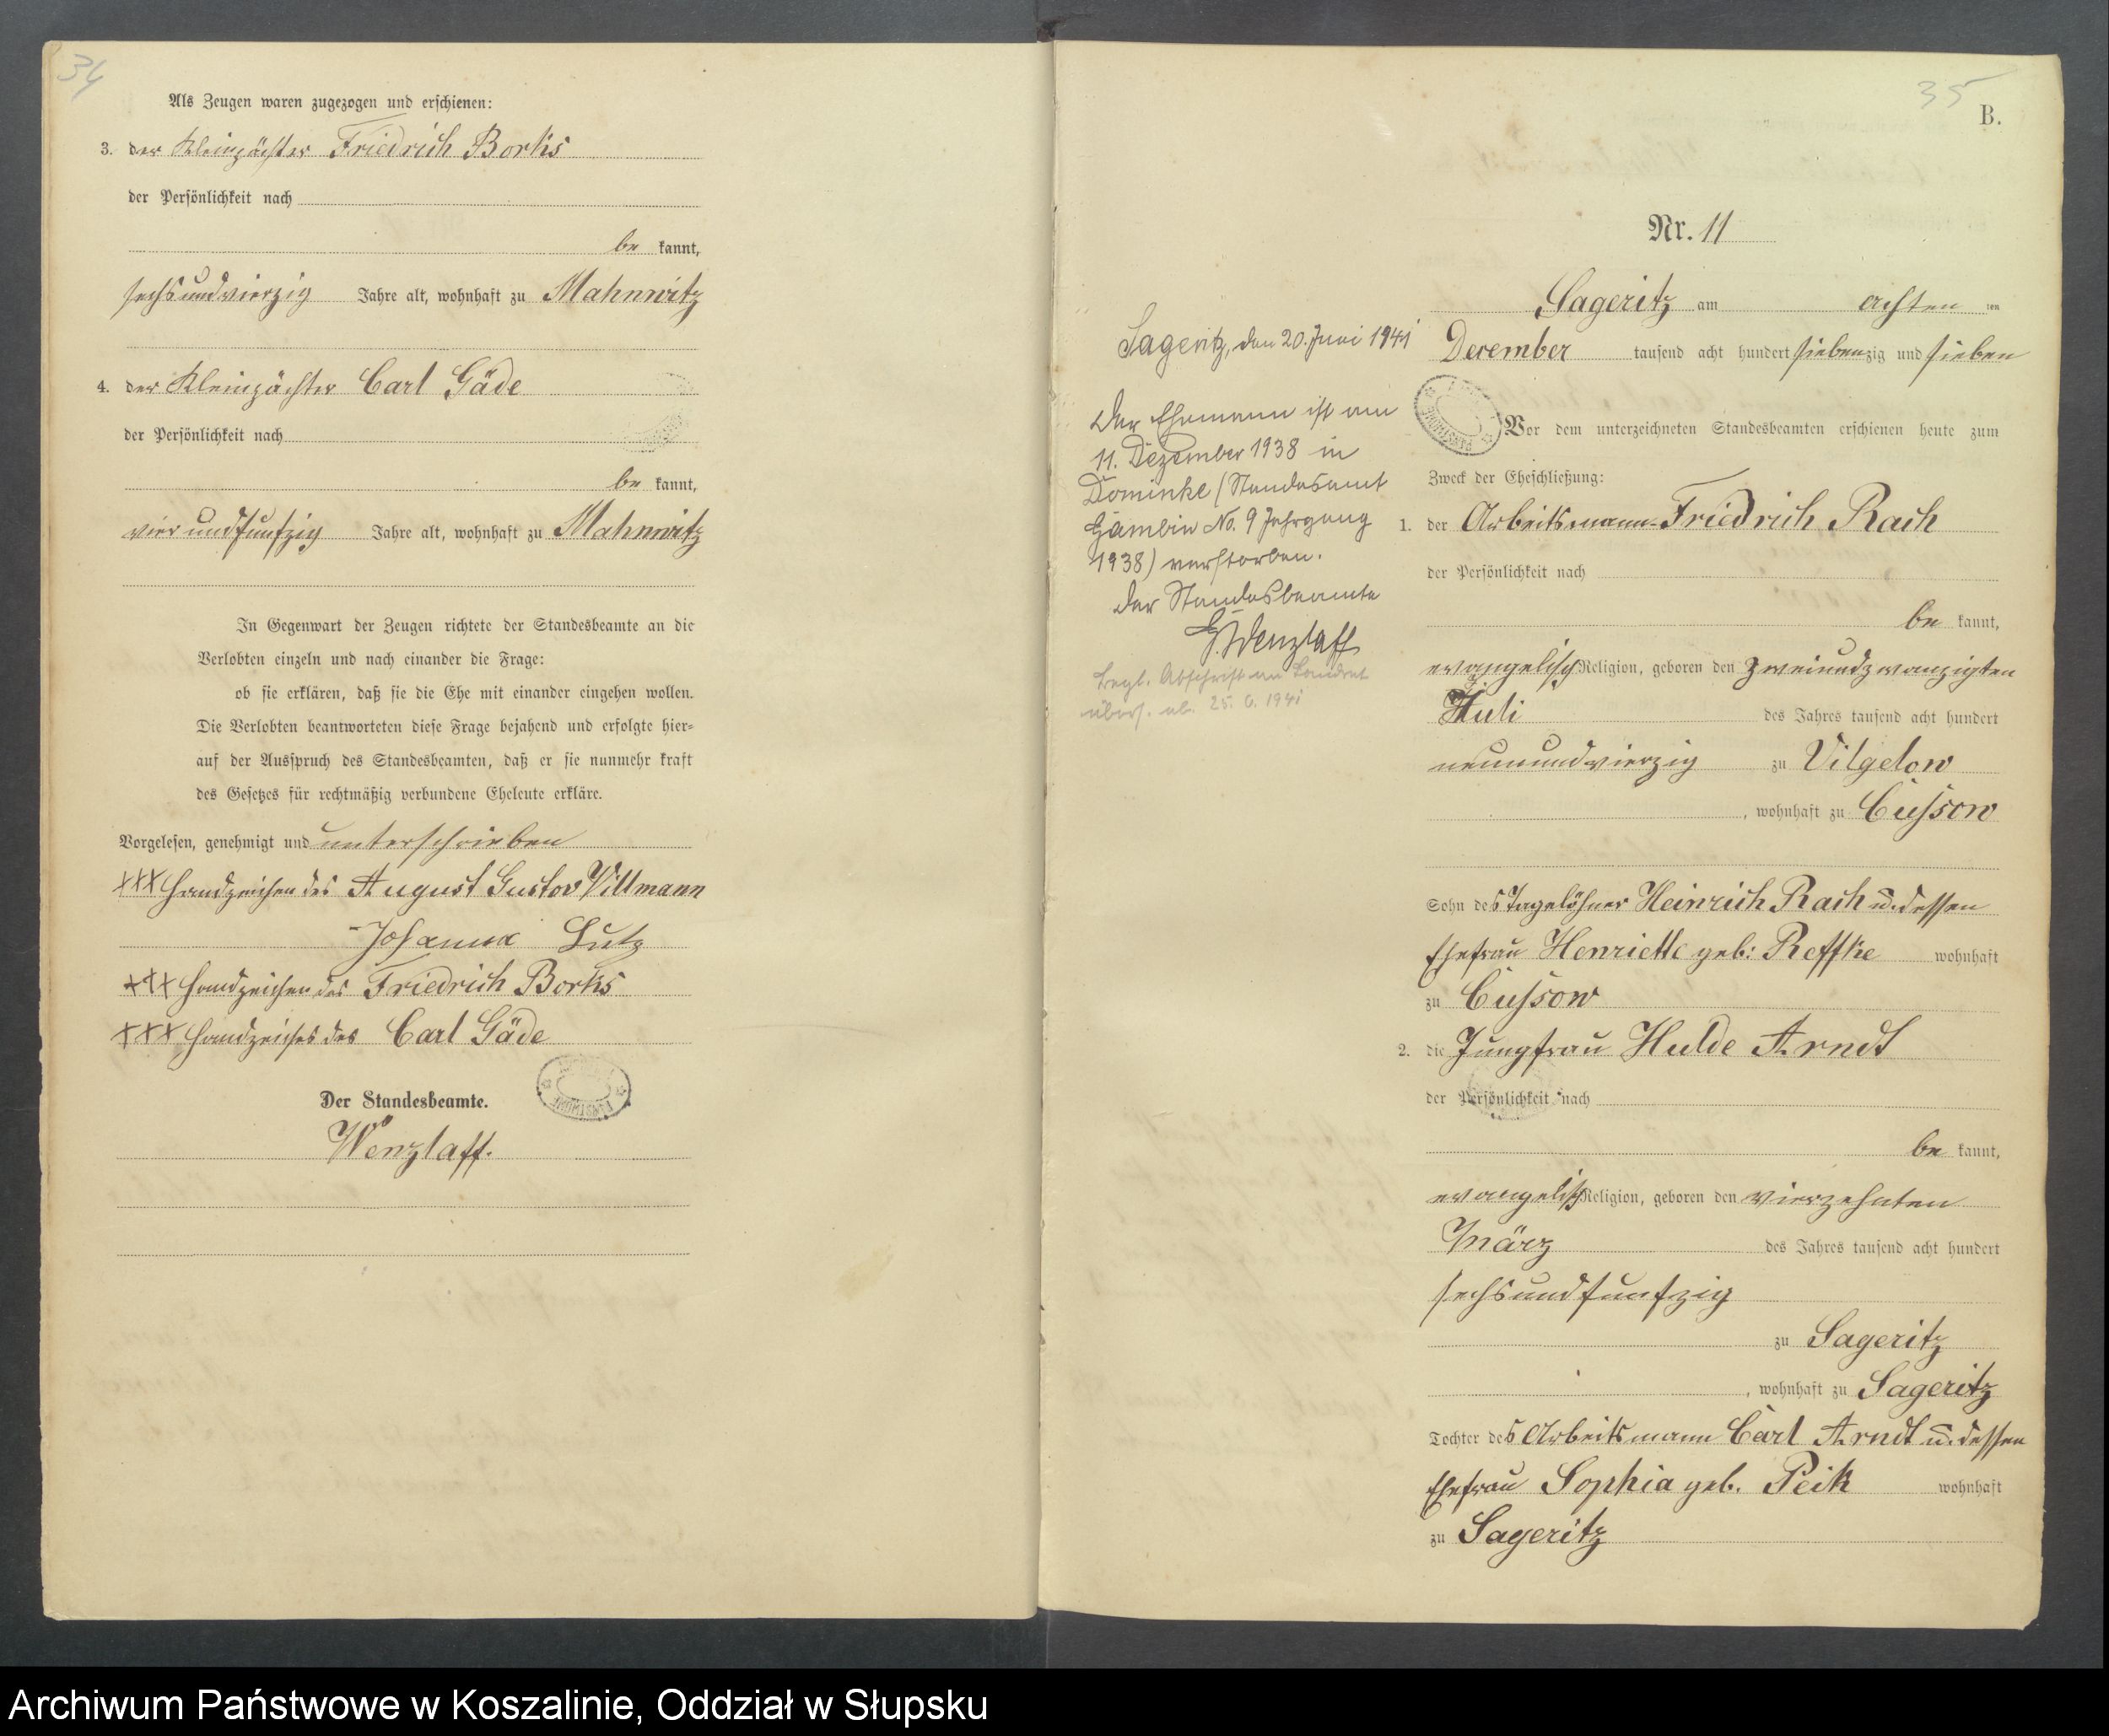 34
Als Zeugen waren zugezogen und erschienen:
3. der Kleinpächter Friedrich Borks
der Persönlichkeit nach
be kannt,
sechsundvierzig Jahre alt, wohnhaft zu Mahnwitz
4. der Kleinpächter Carl Gäde
der Persönlichkeit nach
be kannt,
vierundfunfzig Jahre alt, wohnhaft zu Mahnwitz
In Gegenwart der Zeugen richtete der Standesbeamte an die
Verlobten einzeln und nach einander die Frage:
ob sie erklären, daß sie die Ehe mit einander eingehen wollen.
Die Verlobten beantworteten diese Frage bejahend und erfolgte hier-
auf der Ausspruch des Standesbeamten, daß er sie nunmehr kraft
des Gesetzes für rechtmäßig verbundene Eheleute erkläre.
Vorgelesen, genehmigt und unterschrieben
XXX Handzeichen des August Gustav Villmann
Johanna Lutz
XXX Handzeichen des Friedrich Borks
XXX Handzeichen des Carl Gäde
Der Standesbeamte.
Wenzlaff.
35
B.
Nr. 11
Sageritz am achten ten
December tausend acht hundert siebenzig und sieben
Vor dem unterzeichneten Standesbeamten erschienen heute zum
Zweck der Eheschließung:
1. der Arbeitsmann Friedrich Rach
der Persönlichkeit nach
be kannt,
evangelisch Religion, geboren den zweiundzwanzigten
Juli des Jahres tausend acht hundert
neunundvierzig zu Vilgelow
, wohnhaft zu Cussow
Sohn des Tagelöhner Heinrich Rach u. dessen
Ehefrau Henriette geb: Reffke wohnhaft
zu Cussow
2. die Jungfrau Hulde Arndt
der Persönlichkeit nach
be kannt,
evangelisch Religion, geboren den vierzehnten
März des Jahres tausend acht hundert
sechsundfunfzig
zu Sageritz
, wohnhaft zu Sageritz
Tochter des Arbeitsmann Carl Arndt u. dessen
Ehefrau Sophia geb. Peik wohnhaft
zu Sageritz
Sageritz, den 20. Juni 1941
Der Ehemann ist am
11. Dezember 1938 in
Dominke (Standesamt
Gambin No. 9 Jahrgang
1938) verstorben.
Der Standesbeamte
G. Wenzlaff
Begl. Abschrift an Landrat
übers. ab. 25. 6. 1941
Archiwum Państwowe w Koszalinie, Oddział w Słupsku